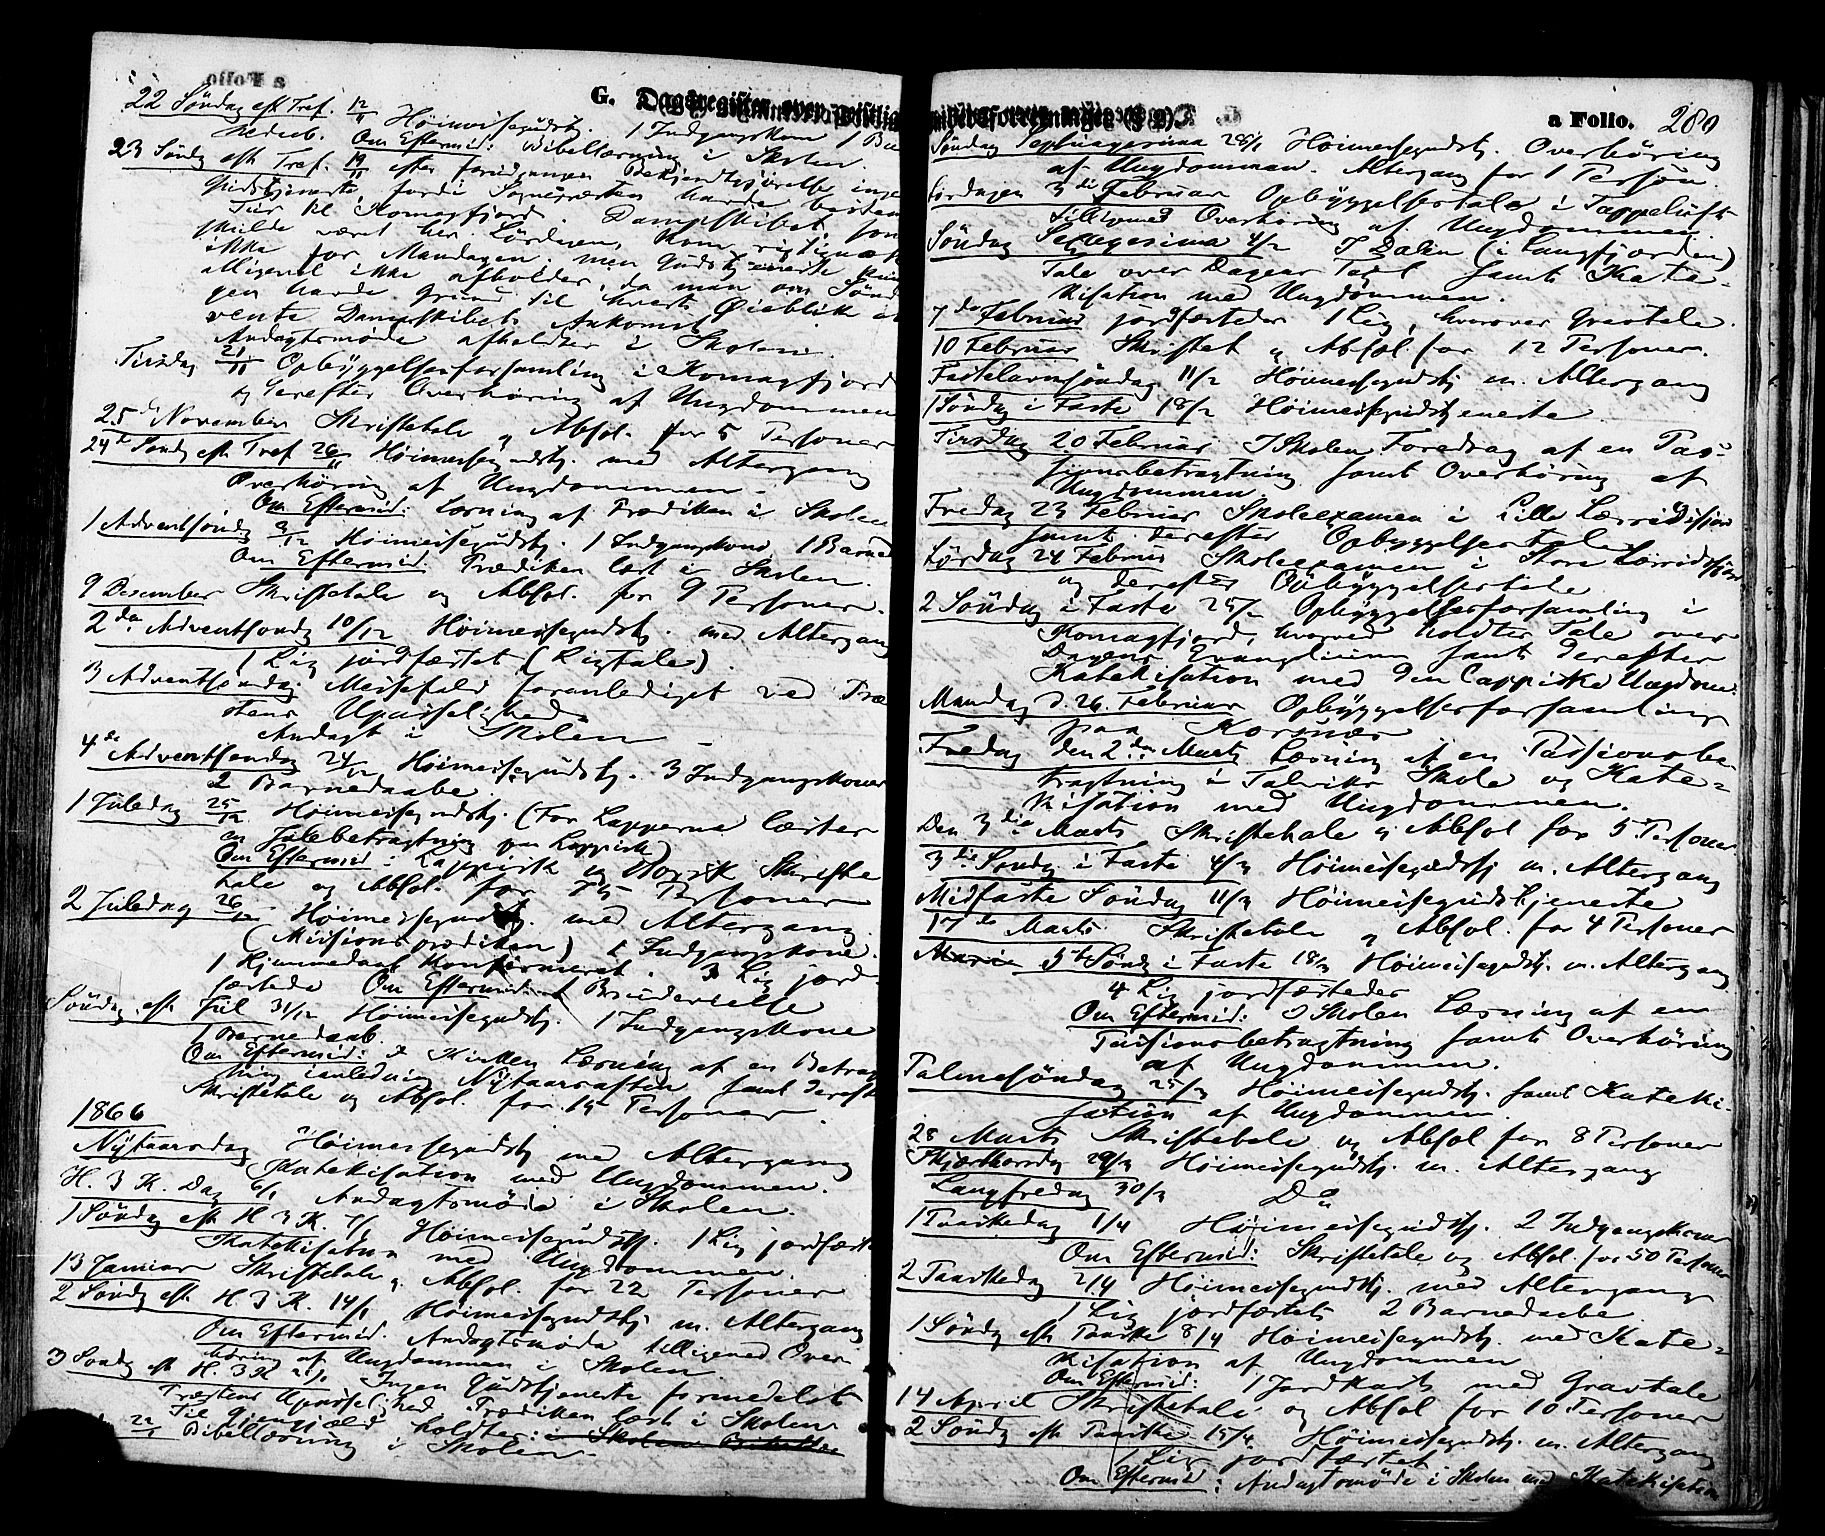 a Folio
G. Dagsregister over geistlig
22 Söndag eft Tref. 12/11 Høimessegudstj. 1 Indgangskone 1 Ba
nedaab. Om Eftermid: Bibellæsning i Skolen.
23 Söndg eft Tref. 19/11 efter foregaaende Bekjendtgjörelse ingen
Gudstjeneste, fordi Sognepræsten havde bestemt
Tur til Komagfjord. Dampskibet, som
skulde været her Lördagen, kom rigtignok
ikke før Mandagen, men Gudstjeneste kun
alligevel ikke afholdes, da man om Sönd
gen havde Grund til hvert Øieblik at
vente Dampskibets Ankomst.
Andagtsmøde afholdtes i Skolen.
Tirsdag 21/11 Opbyggelsesforsamling i Komagfjord
og derefter Overhöring af Ungdommen
25de November Skriftetale og Absol. for 5 Personer
24de Søndg eft Tref 26/11 Høimessegudstj. med Altergang
Overhöring af Ungdommen.
Om Eftermid: Læsning af Prædiken i Skolen
1 Adventssöndg 3/12 Høimessegudstj. 1 Indgangskone, 1 Barned
Om Eftermid: Prædiken læst i Skolen.
9 Desember Skriftetale og Absol. for 9 Personer.
2den Adventssondg 10/12 Høimessegudstj. med Altergang
1 Lig jordfæstet (Ligtale).
3 Adventssøndag. Messefald foranlediget ved Præ
stens Upasselighed.
Andagt i Skolen –
4de Adventssøndag 24/12 Høimessegudstj. 3 Indgangskoner
2 Barnedaabe.
1 Juledag 25/12 Høimessegudstj. (For Lapperne læstes
en Julebetragtning paa Lappisk)
Om Eftermid: Lappisk og Norsk Skrifte
tale og Absol. for 75 Personer
2 Juledag 26/12 Høimessegudstj. med Altergang.
(Missionsprædiken) 1 Indgangskone.
1 Hjemmedaab Konfirmeret. 3 Lig jord-
fæstede Om Eftermid. 1 Brudevielse
Söndag eft Jul 31/12 Høimessegudstj. 1 Indgangskone
1 Barnedaab.
Om Eftermid: I Kirken Læsning af en Betrag
tning ianledning Nytaarsaften samt dereft
Skriftetale og Absol. for 15 Personer.
1866
Nytaarsdag Høimessegudstj med Altergang
Katekisation med Ungdommen.
H. 3 K. Dag 6/1 Andagtsmøde i Skolen.
1 Söndg eft H 3 K. 7/1 Høimessegudstj. 1 Lig jordfæst
Katekisation med Ungdommen.
13 Januar Skriftetale og Absol. for 22 Personer
2 Söndg eft H. 3 K. 14/1 Høimessegudstj m. Altergang
Om Eftermid. Andagtsmøde tilligemed Over
höring af Ungdommen i Skolen.
3 Sondg eft H. 3 K 21/1 Ingen Gudstjeneste formedelst
Præstens Upasselighed. Prædiken læst i Skolen
Til Gjengjæld holdtes i Skolen
22/1 Bibellæsning i Skolen
a Folio. 280
Søndag Septuagesima 28/1 Høimessegudstj. Overhöring
af Ungdommen. Altergang for 1 Person.
Lørdagen 3die Februar Opbyggelsestale i Tappeluft
tilligemed Overhöring af Ungdommen.
Söndag Sexagesima 4/2 I Dalen (i Langfjorden)
Tale over Dagens Text samt Kate-
kisation med Ungdommen.
7de Februar jordfæstedes 1 Lig, hvorover Gravtale.
10 Februar Skriftet. og Absol. for 12 Personer.
Fastelavnssöndag 11/2 Høimessegudstj m. Altergang
1 Söndg i Faste 18/2 Høimessegudstjeneste
Tirsdag 20 Februar I Skolen Foredrag af en Pas-
sionsbetragtning samt Overhöring af
Ungdommen
Fredag 23 Februar Skoleexamen i Lille Lerrisfjord
samt derefter Opbyggelsestale
Lørdag 24 Februar Skoleexamen i Store Lerrisfjord
og derefter Opbyggelsestale
2 Søndag i Faste 25/2 Opbyggelsesforsamling i
Komagfjord, hvorved holdtes Tale over
Dagens Evangelium samt derefter
Katekisation med den Lappiske Ungdom.
Mandag d. 26. Februar Opbyggelsesforsamling
paa Korsnæs
Fredag den 2den Marts Læsning af en Passionsbe-
tragtning i Talviks Skole og Kate-
kisation med Ungdommen.
Den 3die Marts Skriftetale og Absol for 5 Personer.
3die Søndg i Faste 4/3 Høimessegudstj m. Altergang
Midfaste Söndag 11/3 Høimessegudstjeneste
17de Marts Skriftetale og Absol. for 4 Personer
Maria 5te Søndg i Faste 18/3 Høimessegudstj. m. Altergang
4 Lig jordfæstedes
Om Eftermid: I Skolen Læsning af en
Passionsbetragtning samt Overhöring
af Ungdommen.
Palmesöndag 25/3 Høimessegudstj. samt Kateki-
sation af Ungdommen.
28 Marts Skriftetale og Absol for 8 Personer
Skjærthorsdg 29/3 Høimessegudstj. m. Altergang
Langfredag 30/3 Do
1 Paaskedag 1/4 Høimessegudstj. 2 Indgangskoner
Om Eftermid: Skriftetale og Absol. for 50 Personer
2 Paaskedag 2/4 Høimessegudstj. med Altergang
1 Lig jordfæstet 2 Barnedaabe.
1 Söndg eft Paaske 8/4 Høimessegudstj. med Kate-
kisation af Ungdommen
Om Eftermid: 1 Jordkast med Gravtale
14 April Skriftetale og Absol for 10 Personer
2 Söndg eft Paaske 15/4 Høimessegudstj. m. Altergang
1 Lig jordfæstet
Om Eftermid: Andagtsmøde i Skolen med Katekisation